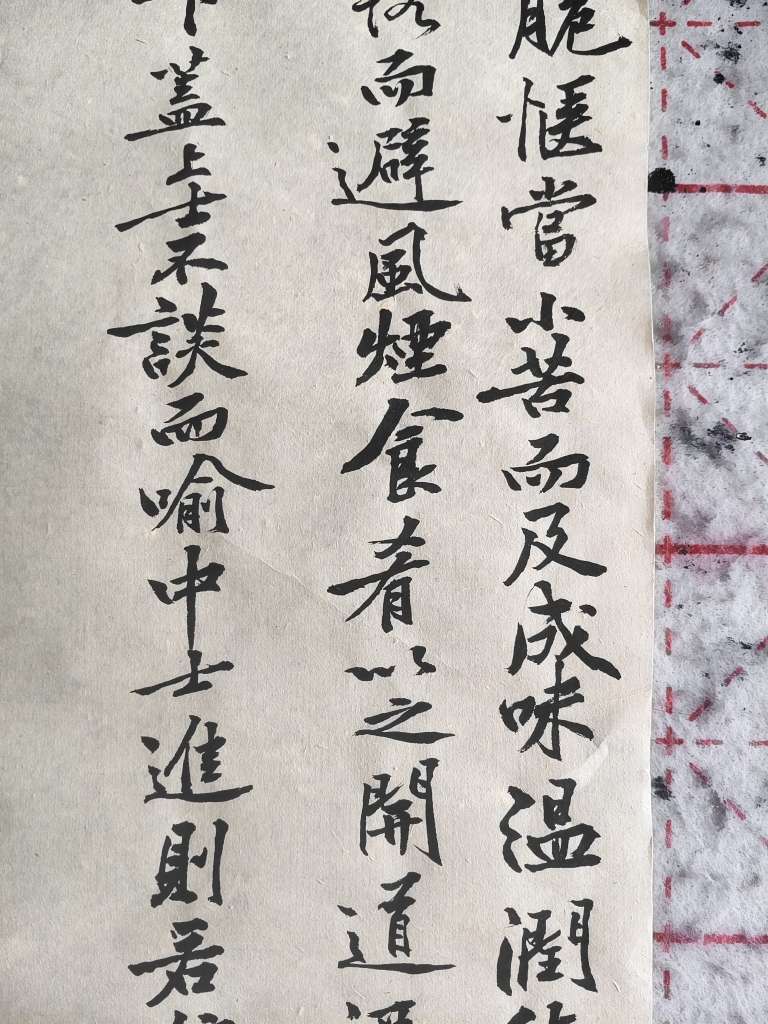 脆愜當小苦而及成味温潤
而避風煙食肴以之開道
下蓋上士不談而喻中士進則若